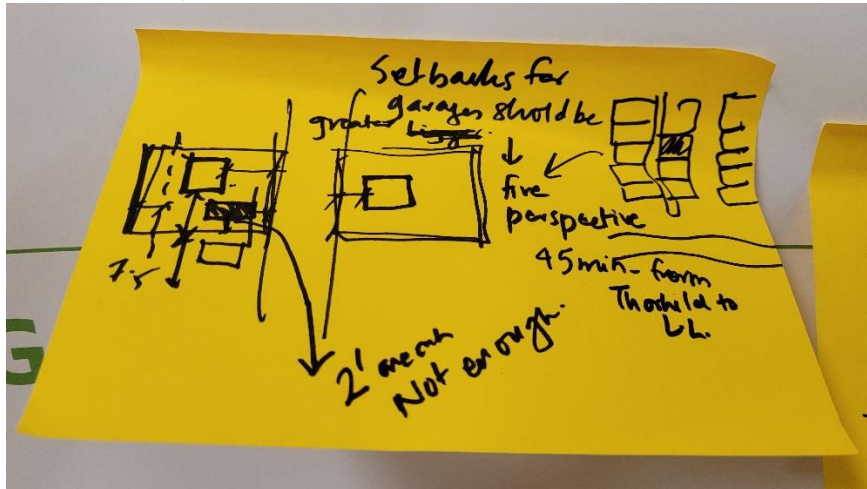 Setbacks for
garages should be
greater
five
perspective
45 min - from
Thorhild to
L.L.
7.5
2' are only
Not enough.
G